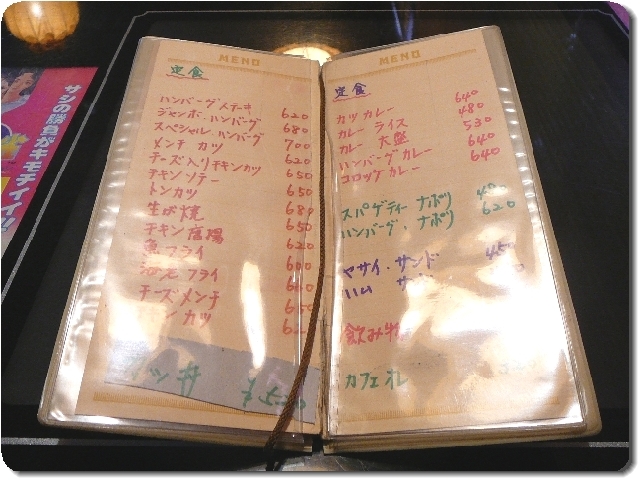 サシの勝負がキモチイイ!!
MENU
定食
ハンバーグステーキ 620
ジャンボ・ハンバーグ 680
スペシャル・ハンバーグ 700
メンチカツ 620
チーズ入りチキンカツ 650
チキンソテー 650
トンカツ 680
生姜焼 650
チキン 620
魚フライ 600
海老フライ
チーズメンチ 650
カツ
丼 ¥520
MENU
定食
カツカレー 640
カレーライス 480
カレー大盛 530
ハンバーグカレー 640
コロッケカレー 640
スパゲティーナポリ
ハンバーグ・ナポリ 620
ヤサイ・サンド 450
ハム
飲み物
カフェオレ